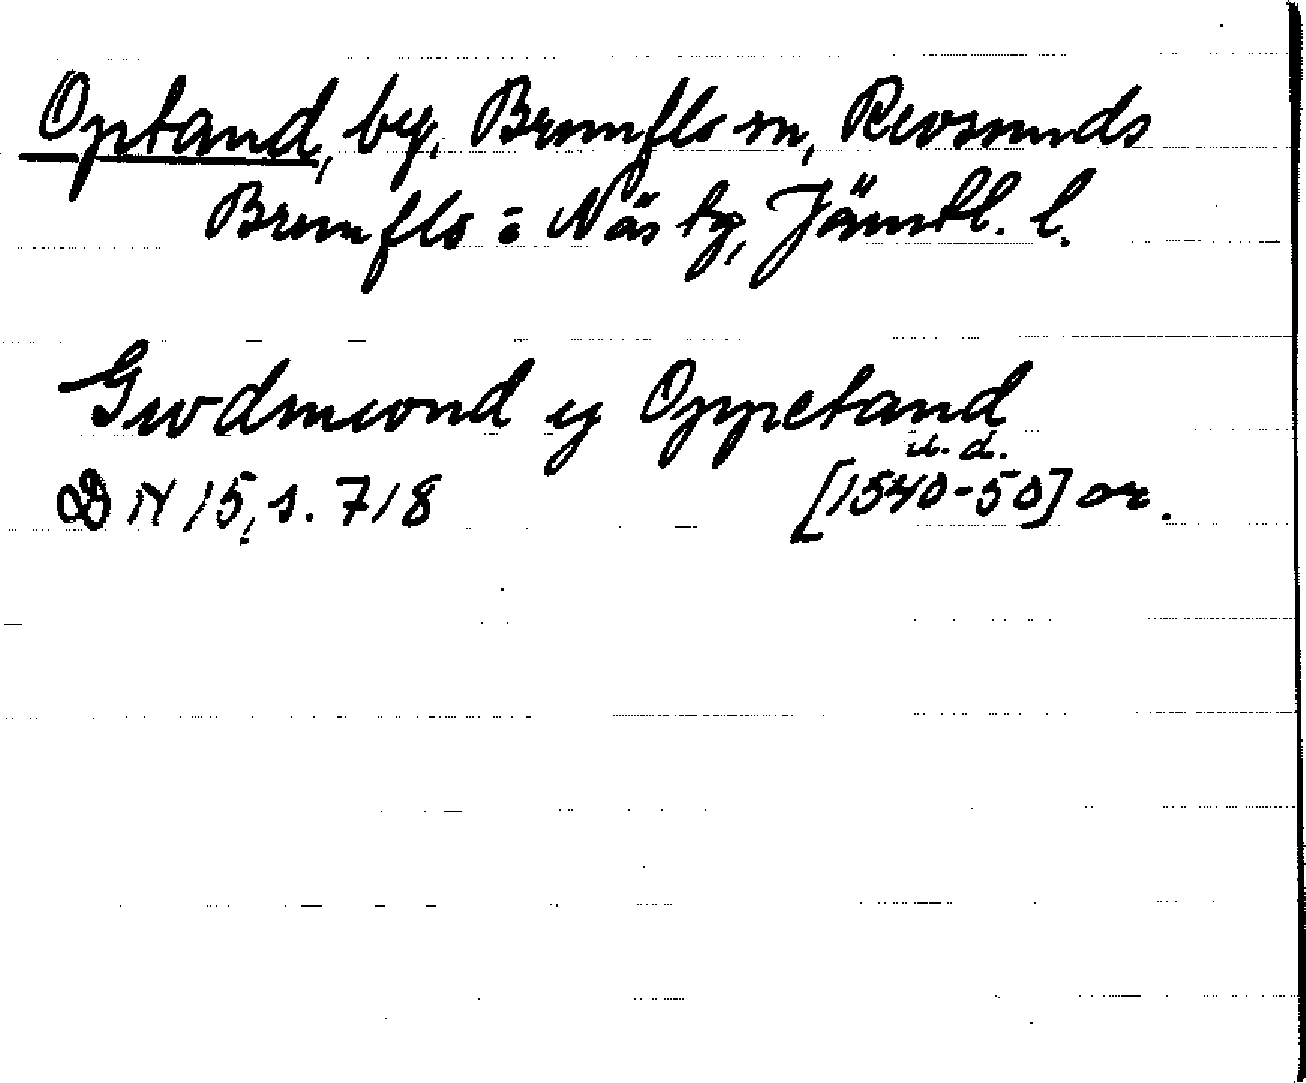 Optand, by, Brunflo sn, Revsunds
Brunflo o Näs tg, Jämtl. l.
Gwdmwond y Oppetand
u. d.
DN 15, s. 718 [1540-50] or.